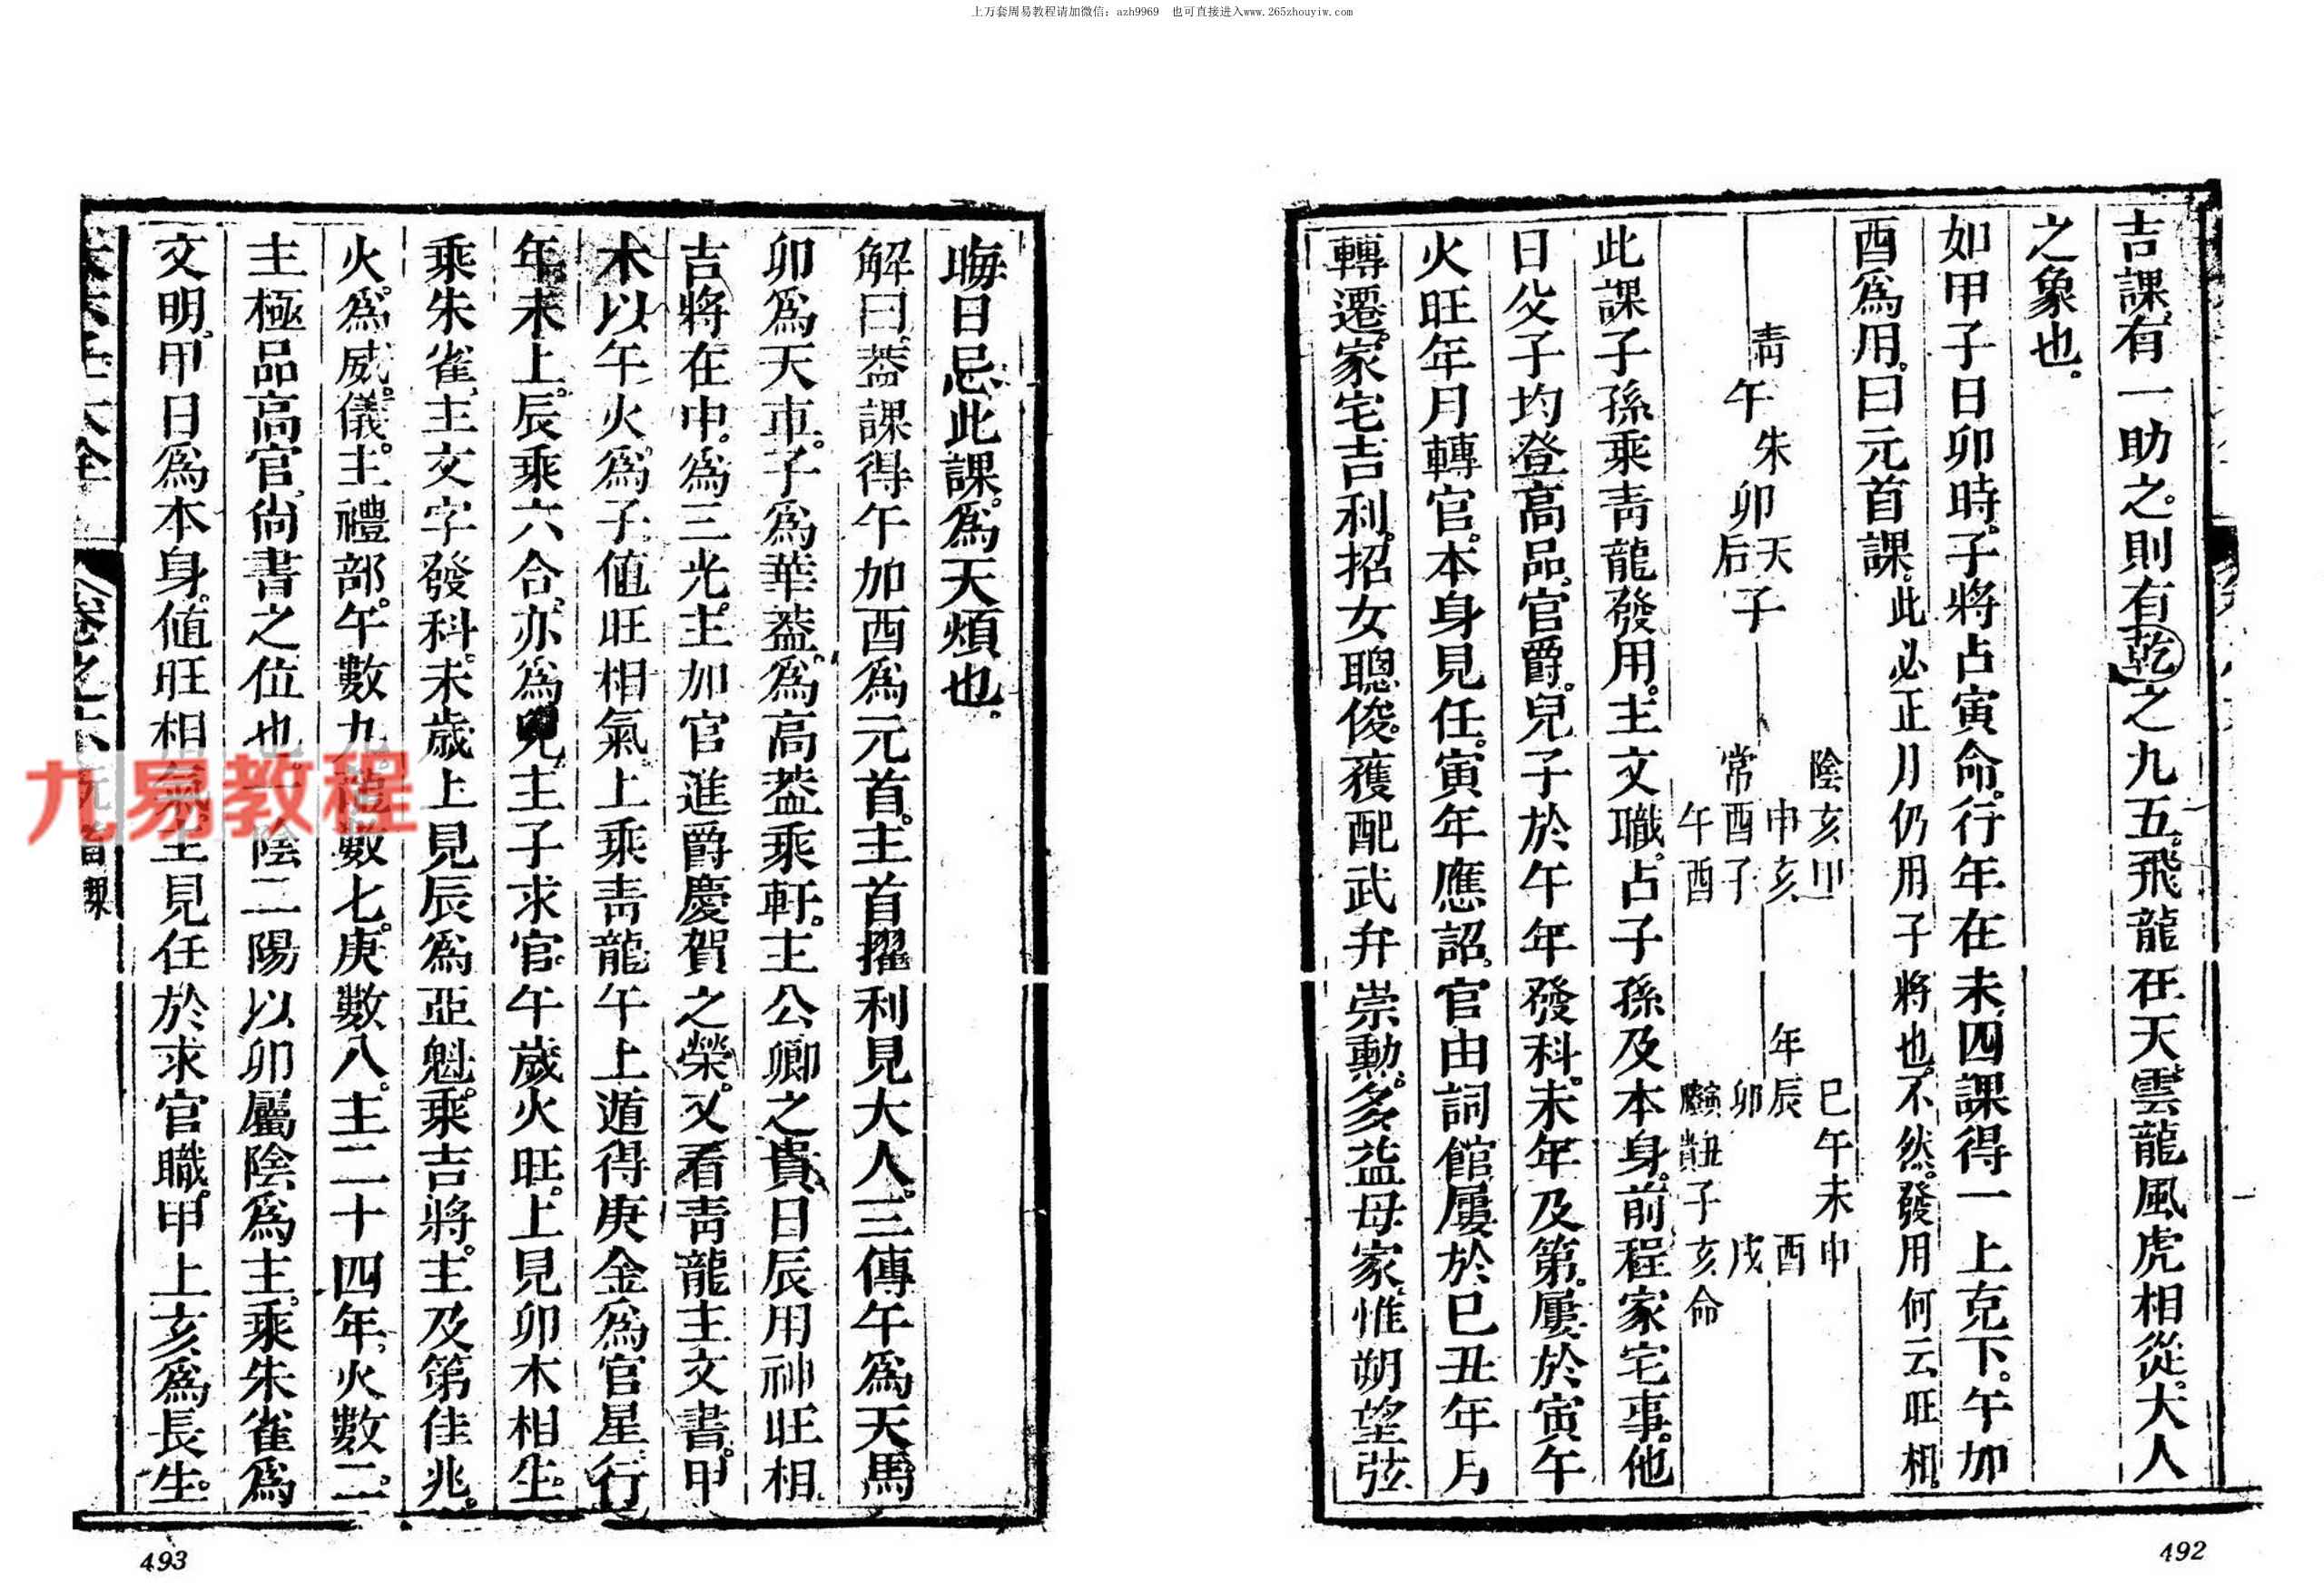 上万套周易教程请加微信：azh9969 也可直接进入www.265zhouyiw.com
吉課有一助之則有乾之九五飛龍在天雲龍風虎相從大人
之象也
如甲子日卯時子將占寅命行年在未四課得一上克下午加
酉爲用曰元首課此必正月仍用子將也不然發用何云旺相
青午
朱卯天
后子
陰亥甲
申亥
常酉子
午酉
巳午未申
年辰酉
卯戌
丑子亥命
此課子孫乘青龍發用主文職占子孫及本身前程家宅事他
日父子均登高品官爵兒子於午年發科未年及第屢於寅午
火旺年月轉官本身見任寅年應詔官由詞館屢於巳丑年月
轉遷家宅吉利招女聰俊獲配武弁崇勳多益母家惟朔望弦
492
晦日忌此課爲天煩也
解曰葢課得午加酉爲元首主首擢利見大人三傳午爲天馬
卯爲天車子爲華葢爲高葢乘軒主公卿之貴日辰用神旺相
吉將在中爲三光主加官進爵慶賀之榮又看青龍主文書甲
木以午火爲子値旺相氣上乘青龍午上遁得庚金爲官星行
年未上辰乘六合亦爲兒主子求官午歲火旺上見卯木相生
乘朱雀主文字發科未歲上見辰爲亞魁乘吉將主及第佳兆
火爲威儀主禮部午數九數七庚數八主二十四年火數二
主極品高官尙書之位也一陰二陽以卯屬陰爲主乘朱雀爲
文明甲日爲本身値旺相氣主見任於求官職甲上亥爲長生
大全
卷之六
課
九易教程
493